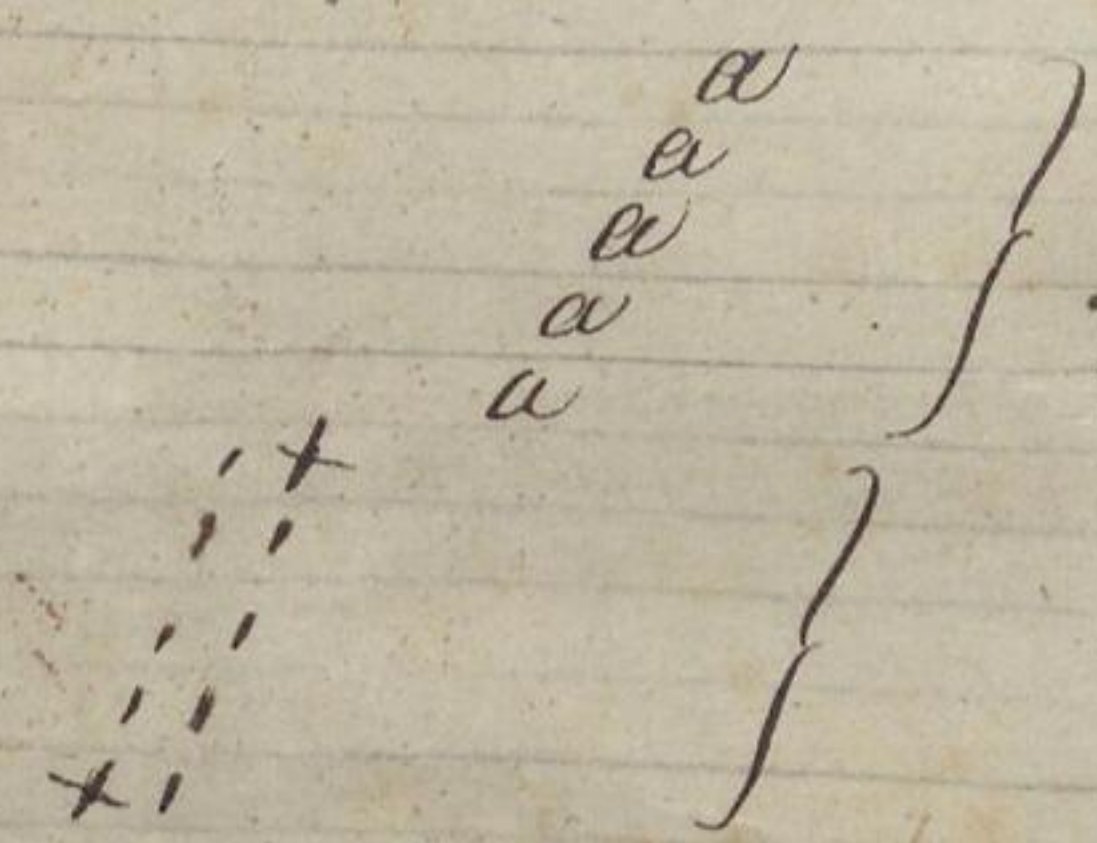 a
a
a
a
a
' +
' '
' '
' '
+ '